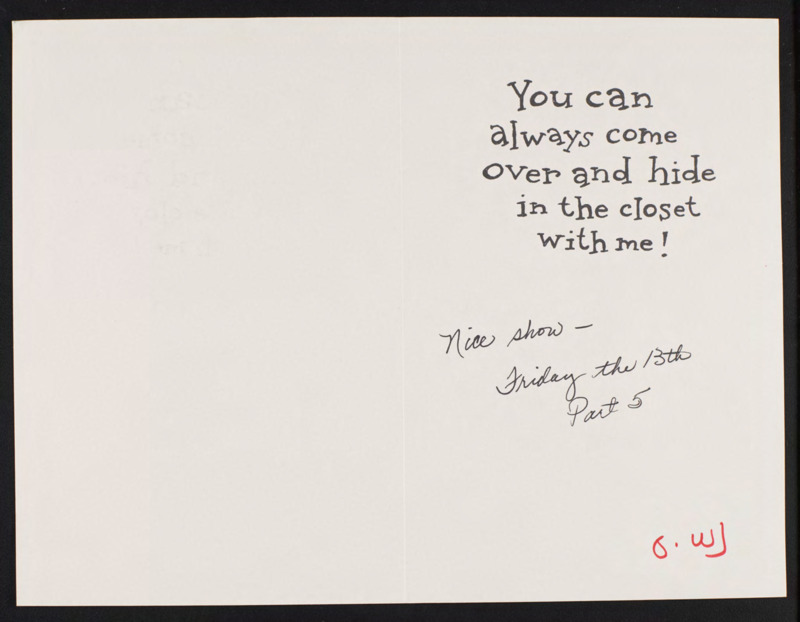 You can
always come
over and hide
in the closet
with me!
Nice show –
Friday the 13th
Part 5